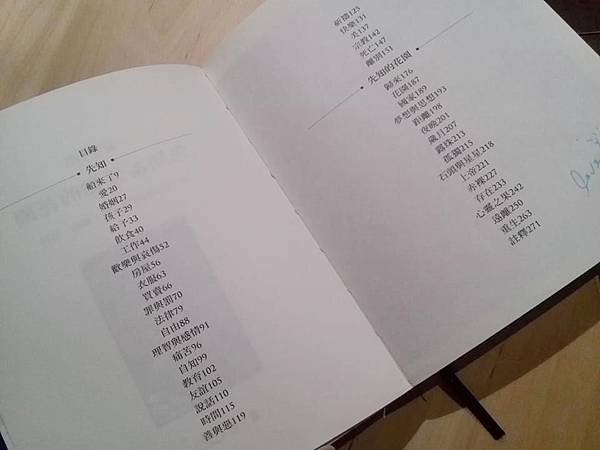 目錄
先知
船來了9
愛20
婚姻27
孩子29
給予33
飲食40
工作44
歡樂與哀傷52
房屋56
衣服63
買賣66
罪與罰70
法律79
自由88
理智與感情91
痛苦96
自知99
教育102
友誼105
說話110
時間115
善與惡119
祈禱125
快樂131
美137
宗教142
死亡147
離別151
先知的花園
歸來176
花園187
國家189
夢想與思想193
距離198
夜晚201
歲月207
露珠213
孤獨215
石頭與星星218
上帝221
赤裸227
存在233
心靈之果242
遠離250
重生263
註釋271